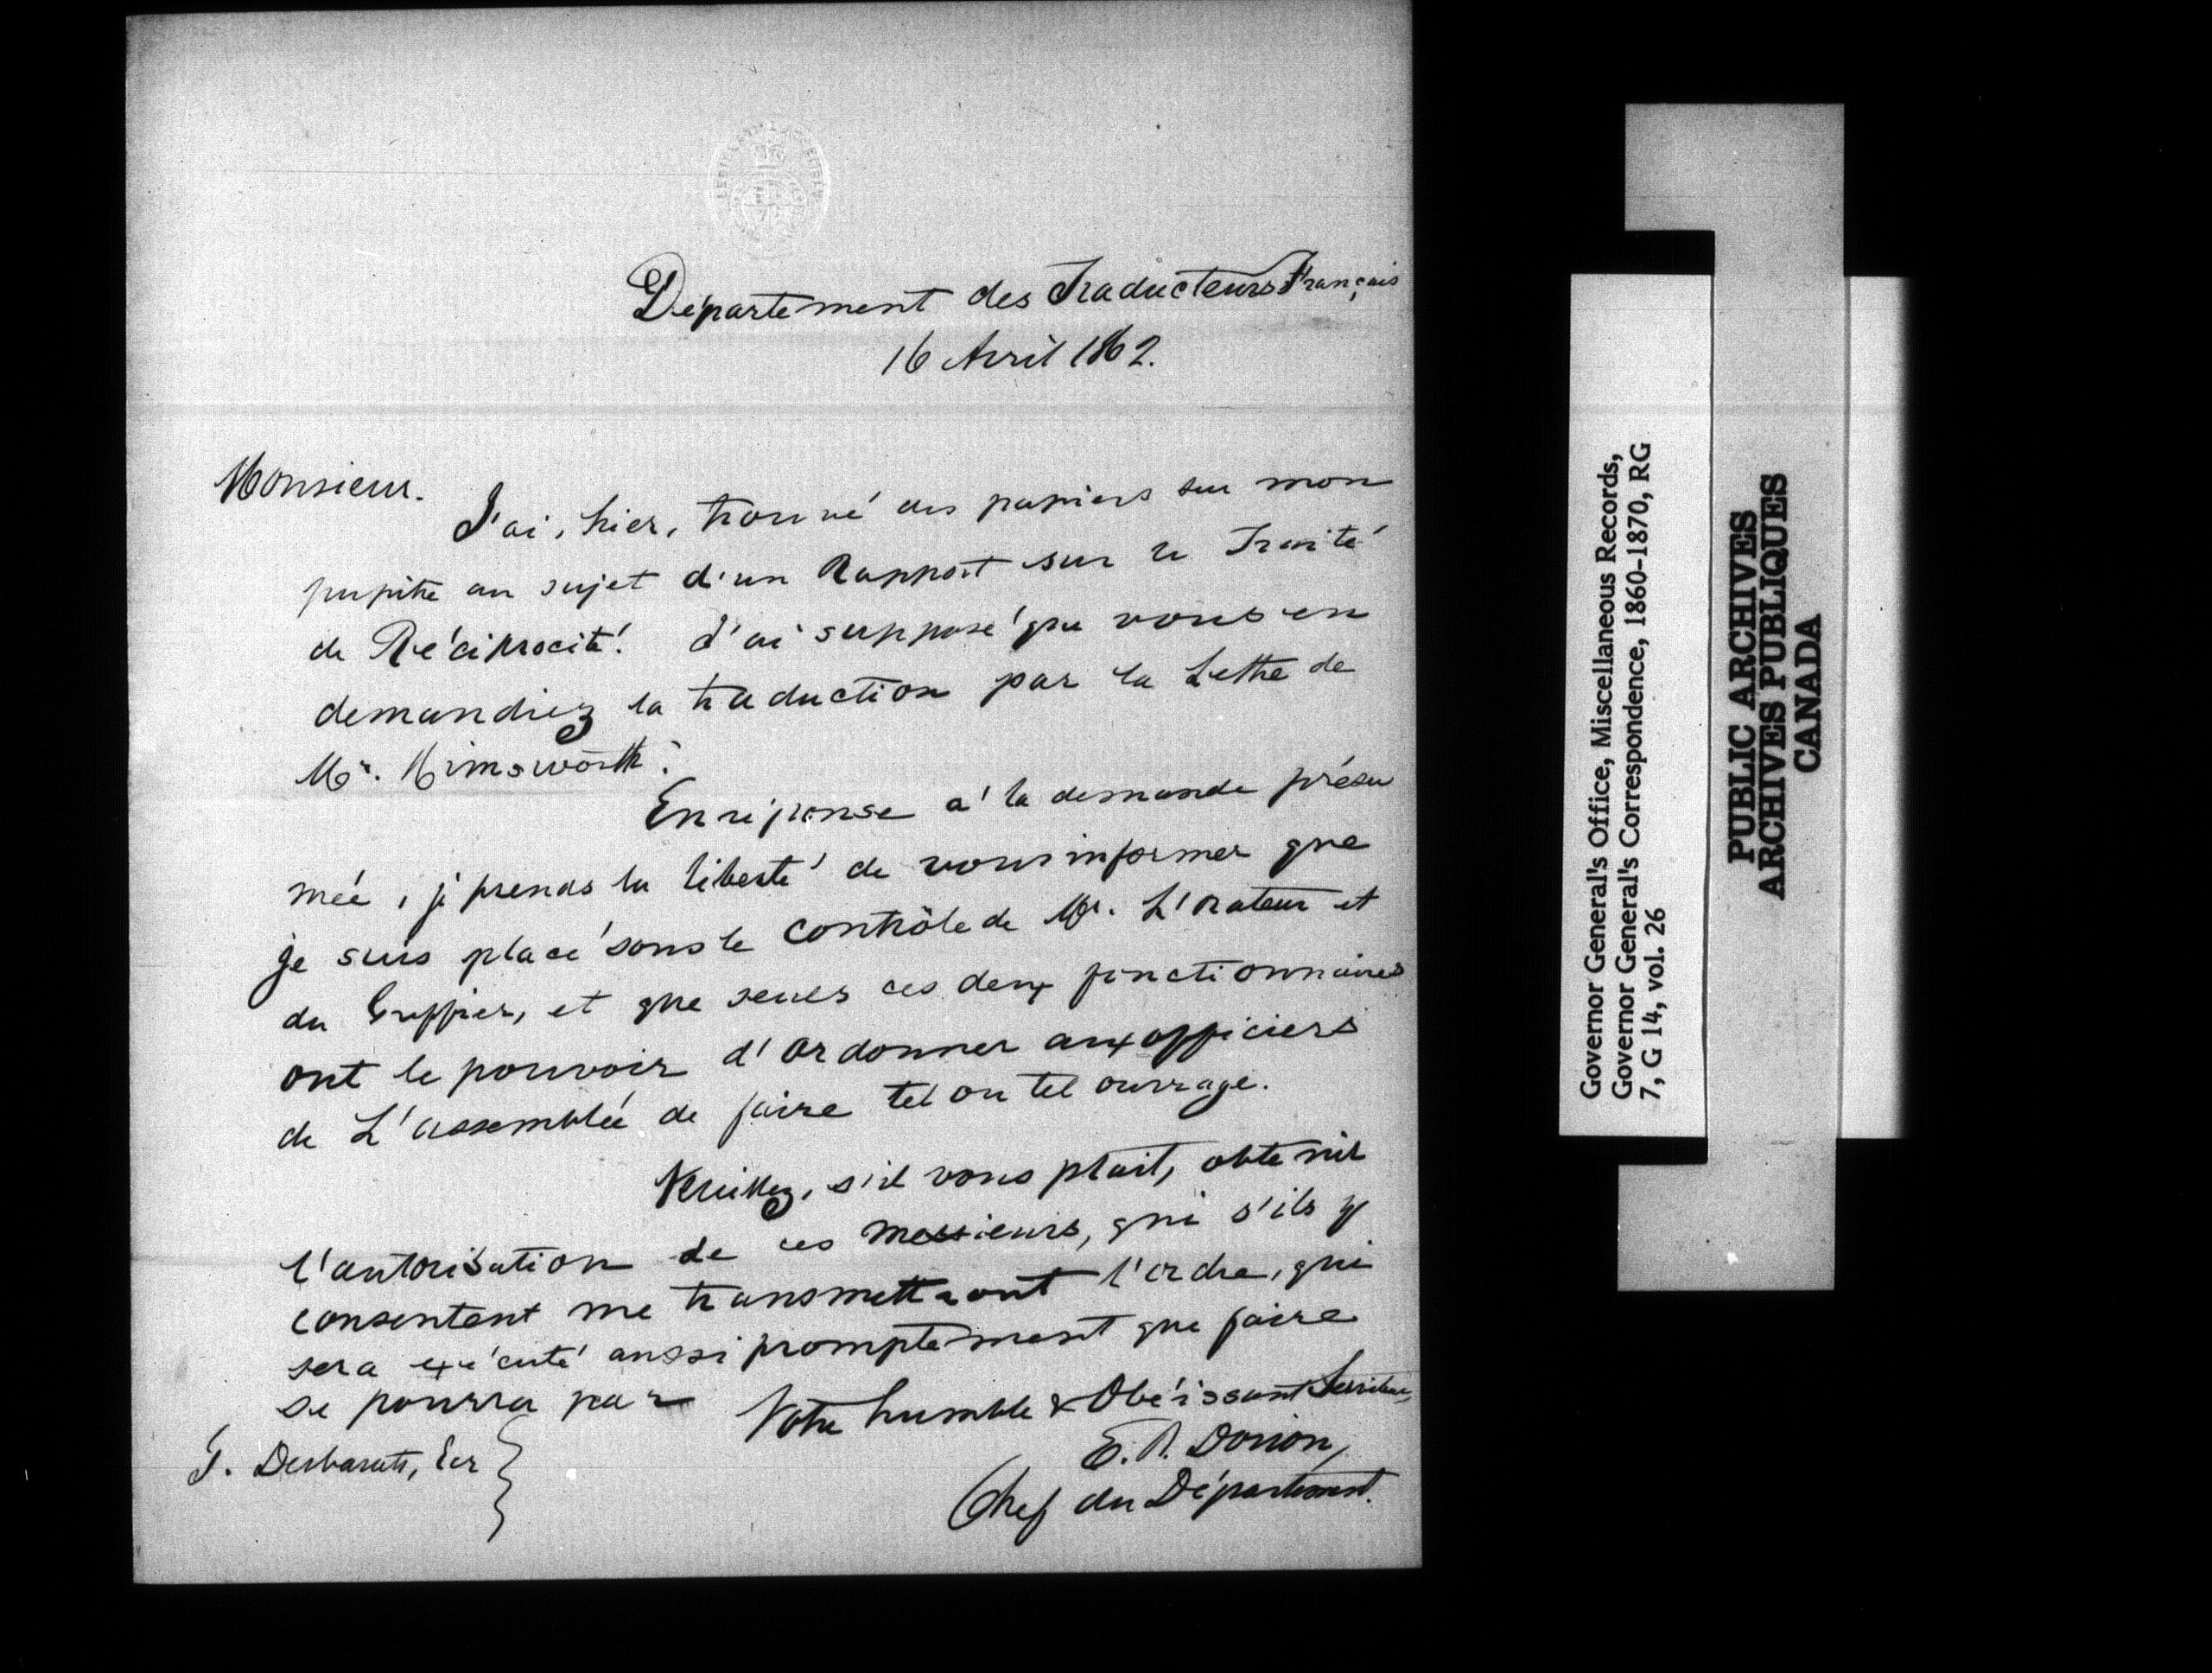 Département des Traducteurs Français
16 Avril 1862.
Monsieur.
J'ai, hier, trouvé des papiers sur mon
pupitre au sujet d'un Rapport sur le Traité
de Réciprocité. J'ai supposé que vous en
demandiez la traduction par la Lettre de
Mr. Himsworth.
En réponse à la demande présu
mée, je prends la liberté de vous informer que
je suis placé sous le contrôle de Mr. L'Orateur et
du Greffier, et que seuls ces deux fonctionnaires
ont le pouvoir d'ordonner aux officiers
de L'assemblée de faire tel ou tel ouvrage.
Veuillez, s'il vous plait, obtenir
l'autorisation de ces messieurs, qui s'ils y
consentent me transmettront l'ordre, qui
sera exécuté aussi promptement que faire
se pourra par
Votre humble & Obéissant Serviteur,
E. R. Dorion,
Chef du Département.
G. Desbarats, Ecr
Governor General's Office, Miscellaneous Records,
Governor General's Correspondence, 1860-1870, RG
7, G 14, vol. 26
PUBLIC ARCHIVES
ARCHIVES PUBLIQUES
CANADA